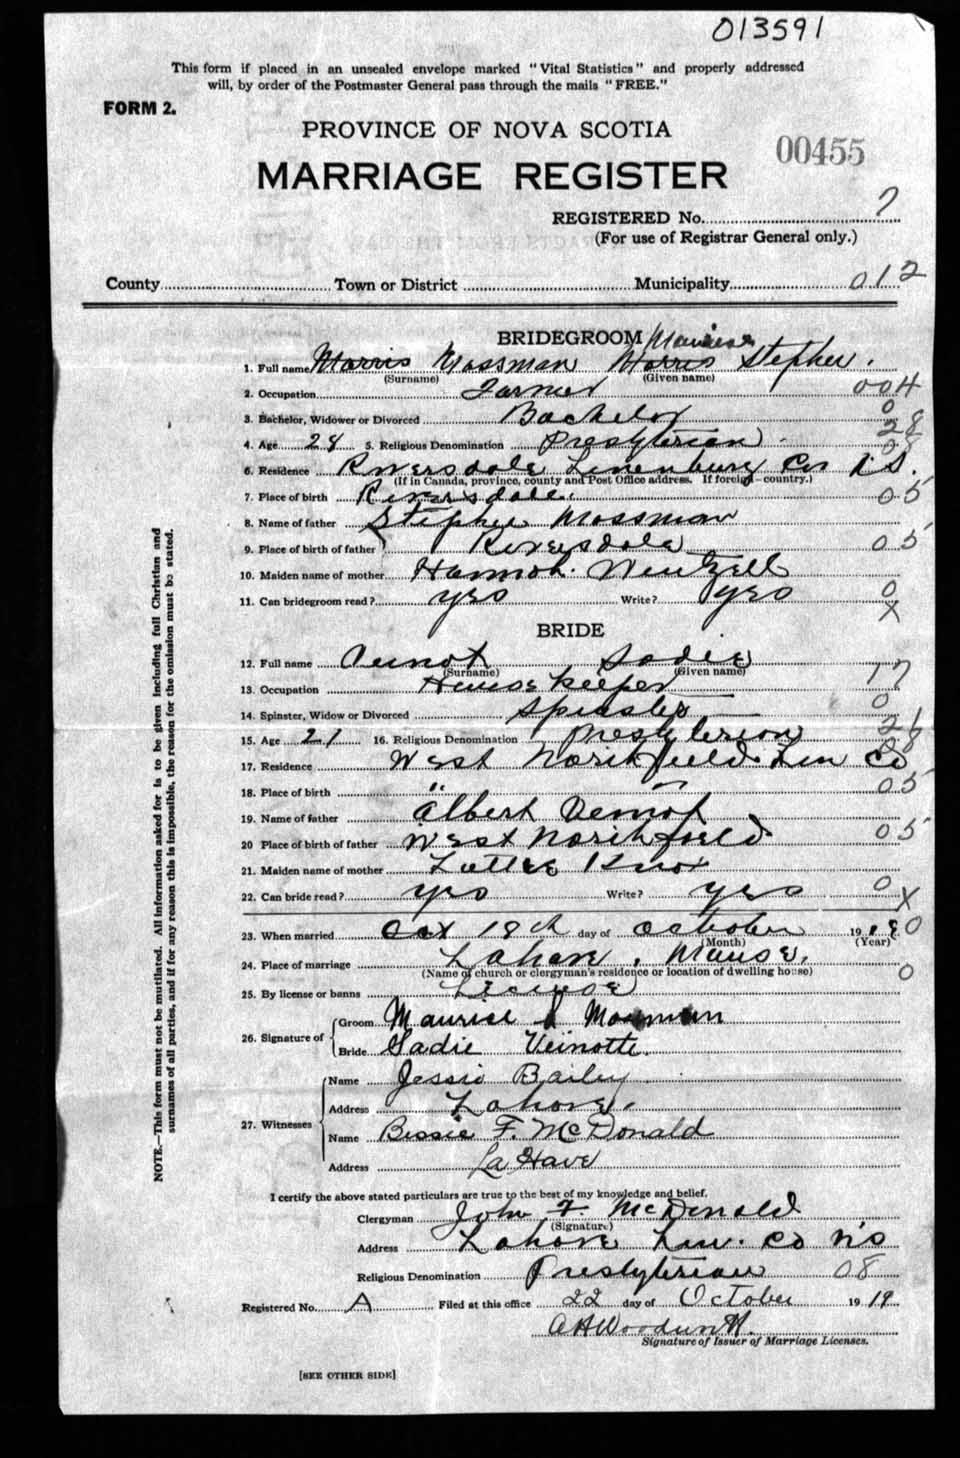 013591
This form if placed in an unsealed envelope marked "Vital Statistics" and properly addressed
will, by order of the Postmaster General pass through the mails "FREE."
FORM 2.
PROVINCE OF NOVA SCOTIA
00455
MARRIAGE REGISTER
REGISTERED No. 7
(For use of Registrar General only.)
County Town or District Municipality 012
BRIDEGROOM Maurice
1. Full name Morris Mossman Morris Stephen.
(Surname) (Given name)
2. Occupation Farmer 004
3. Bachelor, Widower or Divorced Bachelor 0
4. Age 28 5. Religious Denomination Presbyterian 28
6. Residence Riversdale Lunenburg Co N.S. 08
(If in Canada, province, county and Post Office address. If foreign—country.)
7. Place of birth Riversdale. 05
8. Name of father Stephen Mossman
9. Place of birth of father Riversdale 05
10. Maiden name of mother Hannah Wentzell
11. Can bridegroom read? yes Write? yes 0
X
BRIDE
12. Full name Veinot Sadie
(Surname) (Given name)
13. Occupation House Keeper 17
14. Spinster, Widow or Divorced Spinster 0
15. Age 21 16. Religious Denomination Presbyterian 21
17. Residence West Northfield Lun Co 08
18. Place of birth " " 05
19. Name of father Albert Veinot
20 Place of birth of father West Northfield 05
21. Maiden name of mother Knox
22. Can bride read? yes Write? yes 0
X
23. When married 18th day of October 19 19 0
(Month) (Year)
24. Place of marriage Lahave, Manse. 0
(Name of church or clergyman's residence or location of dwelling house)
25. By license or banns License
26. Signature of Groom Maurice S Mossman
Bride Sadie Veinotte.
27. Witnesses
Name Jessie Bailey
Address Lahave.
Name Bessie F. McDonald
Address La Have
I certify the above stated particulars are true to the best of my knowledge and belief.
Clergyman John F. McDonald
(Signature)
Address Lahave Lun. Co N S
Religious Denomination Presbyterian 08
Registered No. A Filed at this office 22 day of October 19 19.
Signature of Issuer of Marriage Licenses.
[SEE OTHER SIDE]
NOTE.—This form must not be mutilated. All information asked for is to be given including full Christian and
surnames of all parties, and if for any reason this is impossible, the reason for the omission must be stated.